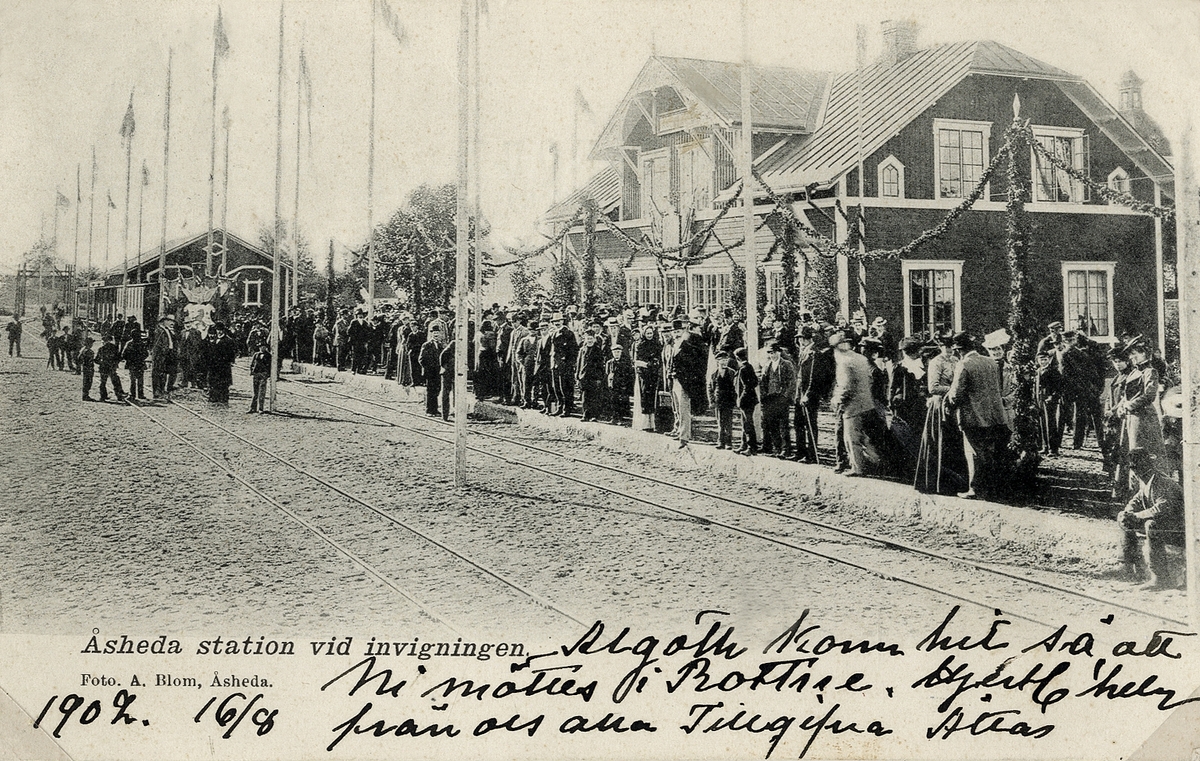 Åsheda station vid invigningen.
Foto. A. Blom, Åsheda.
Algoth Kom hit så att
Ni möttes i Rottne. Hjertl. hels
från oss alla Tillgifna
1902. 16/8